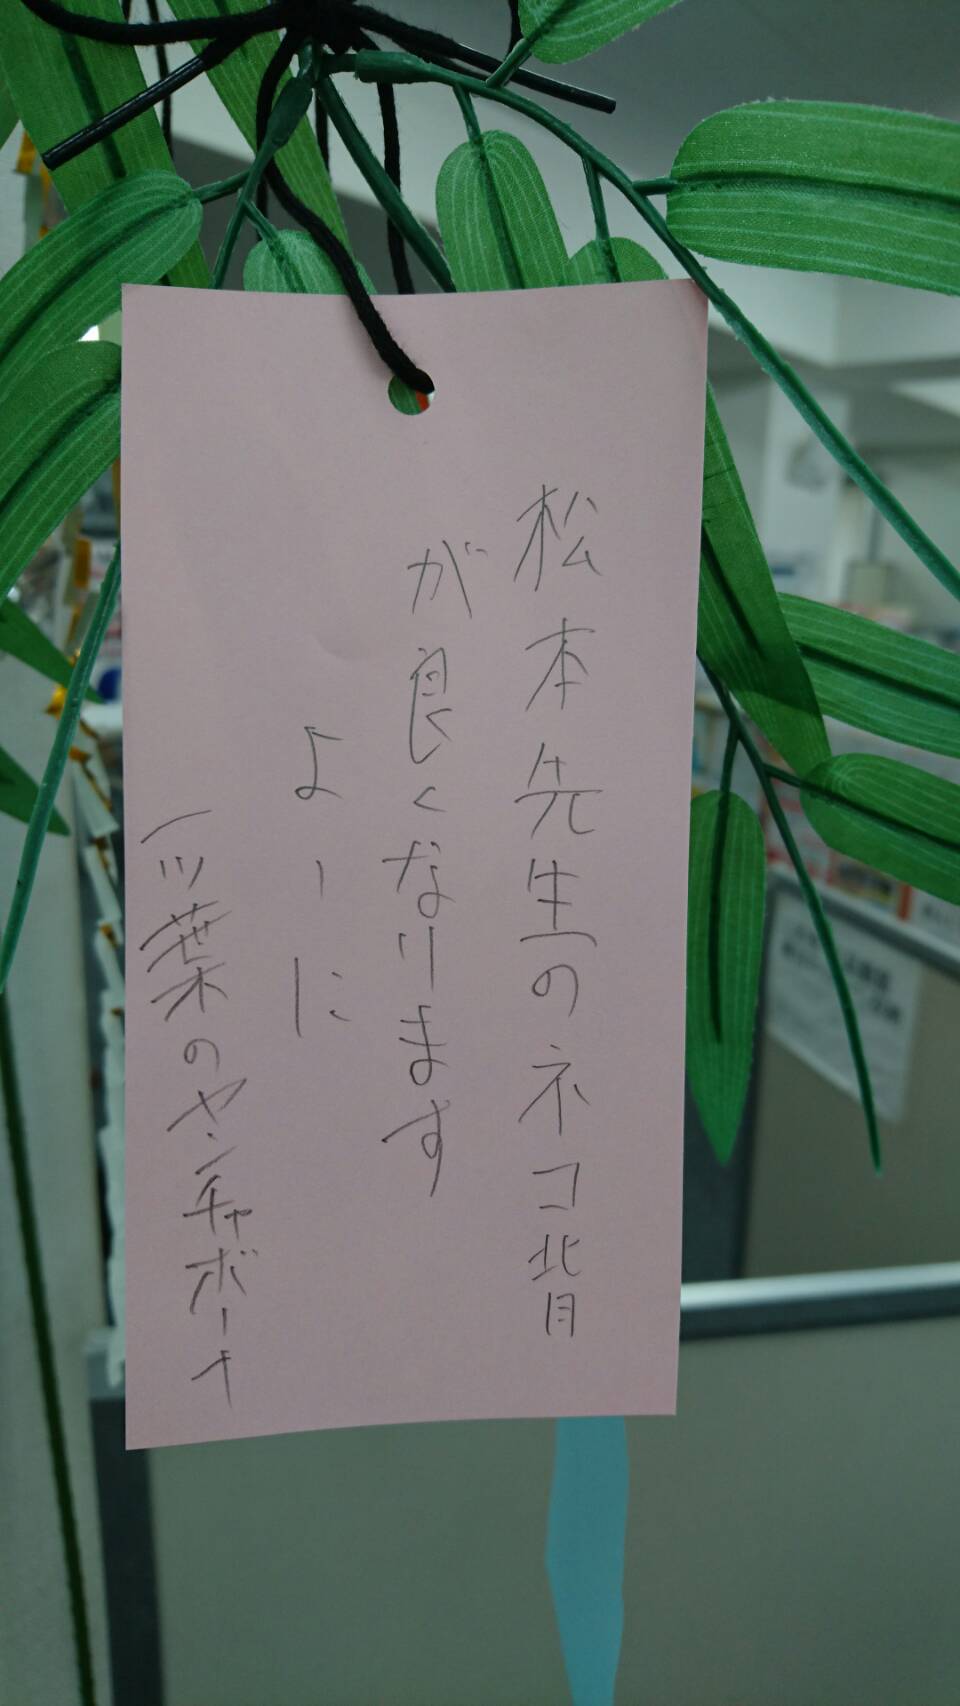 松本先生のネコ背
が良くなります
よーに
一ツ葉のヤンチャボーイ